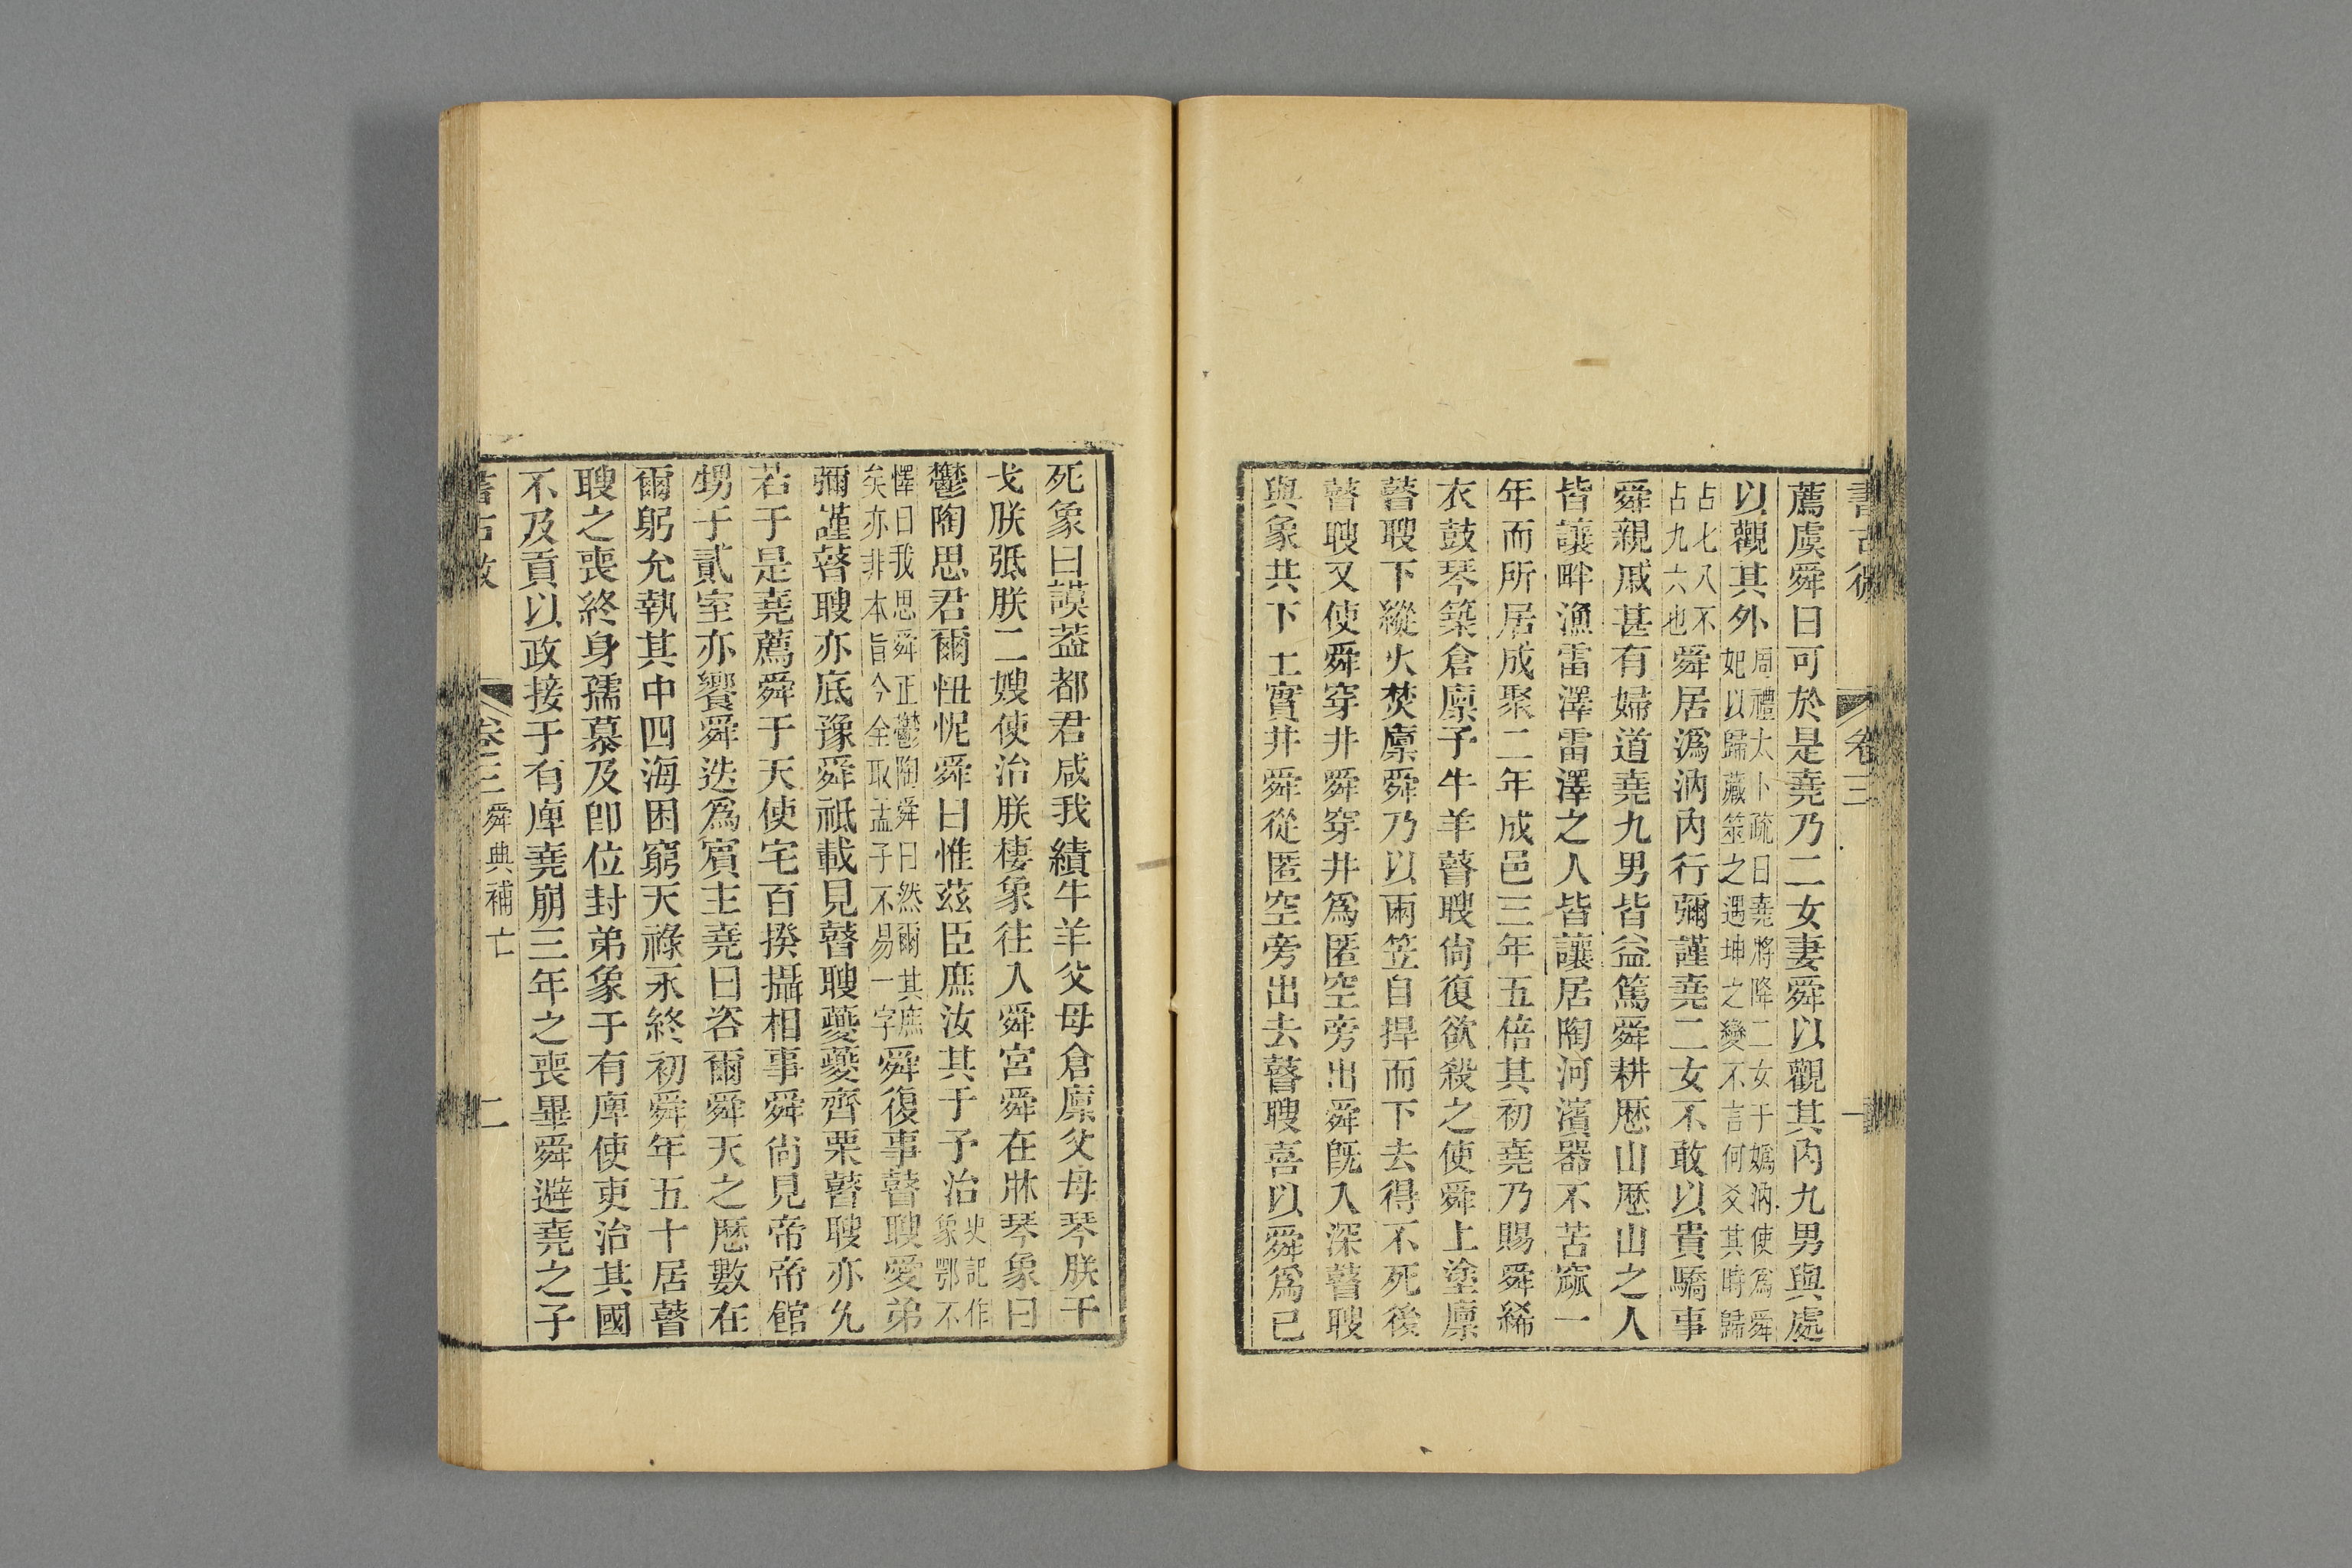 書古微 卷三 一
薦虞舜曰可於是堯乃二女妻舜以觀其內九男與處
以觀其外周禮太卜疏曰堯將降二女于嬀汭使爲舜妃以歸藏筮之遇坤之變不言何爻其時歸
占七八不占九六也舜居潙汭內行彌謹堯二女不敢以貴驕事
舜親戚甚有婦道堯九男皆益篤舜耕歷山歷山之人
皆讓畔漁雷澤雷澤之人皆讓居陶河濱器不苦窳一
年而所居成聚二年成邑三年五倍其初堯乃賜舜絺
衣鼓琴築倉廩予牛羊瞽瞍尙復欲殺之使舜上塗廩
瞽瞍下縱火焚廩舜乃以兩笠自捍而下去得不死後
瞽瞍又使舜穿井舜穿井爲匿空旁出舜旣入深瞽瞍
與象共下土實井舜從匿空旁出去瞽瞍喜以舜爲已
死象曰謨蓋都君咸我績牛羊父母倉廩父母琴朕干
戈朕弤朕二嫂使治朕棲象往入舜宮舜在牀琴象曰
鬱陶思君爾忸怩舜曰惟茲臣庶汝其于予治史記作象鄂不
懌曰我思舜正鬱陶舜曰然爾其庶矣亦非本旨今全取孟子不易一字舜復事瞽瞍愛弟
彌謹瞽瞍亦底豫舜祗載見瞽瞍夔夔齊栗瞽瞍亦允
若于是堯薦舜于天使宅百揆攝相事舜尙見帝帝館
甥于貳室亦饗舜迭爲賓主堯曰咨爾舜天之歷數在
爾躬允執其中四海困窮天祿永終初舜年五十居瞽
瞍之喪終身孺慕及卽位封弟象于有庳使吏治其國
不及貢以政接于有庳堯崩三年之喪畢舜避堯之子
書古微 卷三 舜典補亡 二